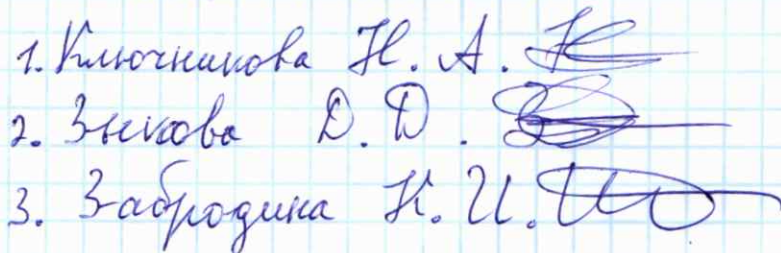 1. Ключникова Н. А.
2. Зыкова Д. Д.
3. Забродина К. И.